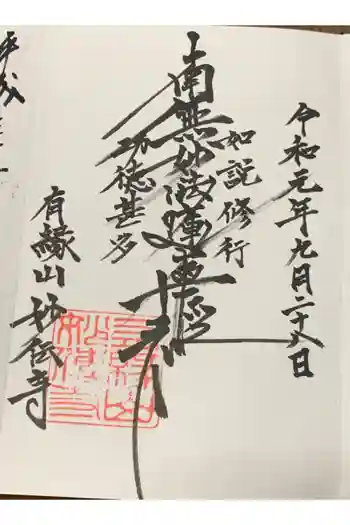 令和元年九月二十八日
如説修行
南無妙法蓮華経
功徳甚多
有縁山
妙伝寺
平成